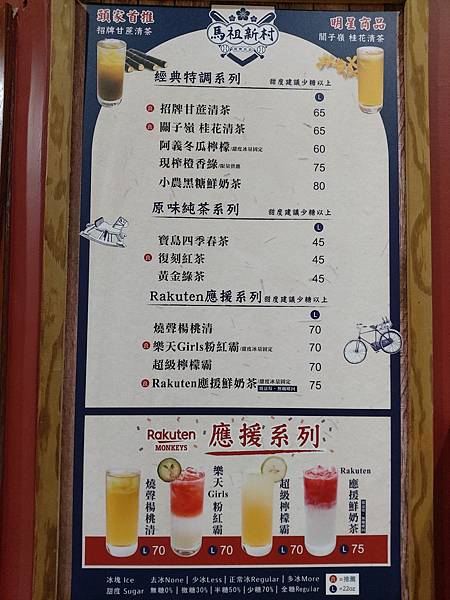 頭家首推
招牌甘蔗清茶
馬祖新村
明星商品
關子嶺 桂花清茶
經典特調系列 甜度建議少糖以上
L
真 招牌甘蔗清茶 65
真 關子嶺 桂花清茶 65
阿義冬瓜檸檬/甜度冰量固定 60
現榨橙香綠/限量供應 75
小農黑糖鮮奶茶 80
原味純茶系列 甜度建議少糖以上
L
寶島四季春茶 45
真 復刻紅茶 45
黃金綠茶 45
Rakuten應援系列 甜度建議少糖以上
L
燒聲楊桃清 70
真 樂天Girls粉紅霸/甜度冰量固定 70
超級檸檬霸 70
真 Rakuten應援鮮奶茶/甜度冰量固定 75
Rakuten
MONKEYS
應援系列
燒聲楊桃清
L 70
樂天Girls粉紅霸
L 70
超級檸檬霸
L 70
Rakuten
應援鮮奶茶
L 75
冰塊 Ice 去冰None | 少冰Less | 正常冰Regular | 多冰More 真=推薦
甜度 Sugar 無糖0% | 微糖30% | 半糖50% | 少糖70% | 全糖Regular L=22oz